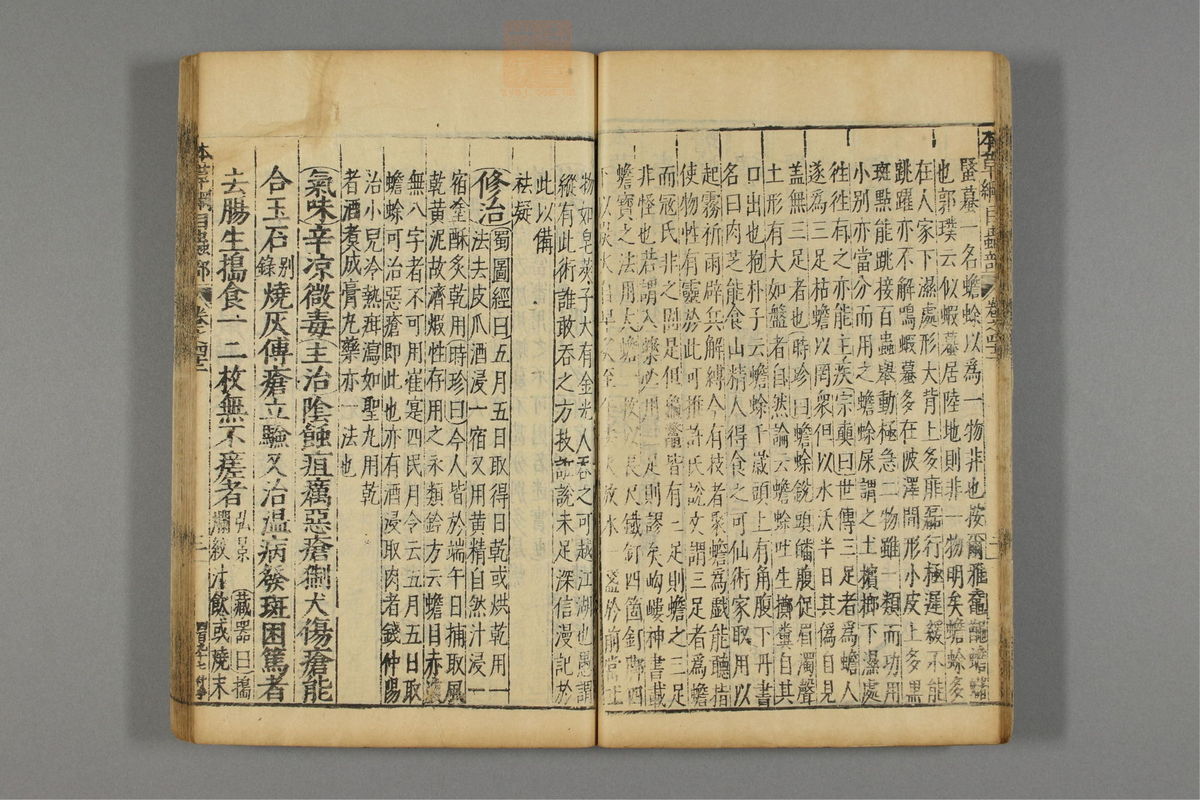 本草綱目蟲部 卷之四十二
蟇一名蟾蜍以為一物非也按爾雅鼁蟾蠩
也郭璞云似蝦蟇居陸地則非一物明矣蟾蜍多
在人家下濕處形大背上多痱磊行極遲緩不能
跳躍亦不解鳴蝦蟇多在陂澤間形小皮上多黑
斑點能跳接百蟲舉動極急二物雖一類而功用
小別亦當分而用之蟾蜍屎謂之土檳榔下濕處
徃徃有之亦能主疾宗奭曰世傳三足者為蟾人
遂為三足枯蟾以罔衆但以水沃半日其偽自見
盖無三足者也時珍曰蟾蜍銳頭皤腹促眉濁聲
土形有大如盤者自然論云蟾蜍吐生擲糞自其
口出也抱朴子云蟾蜍千歲頭上有角腹下丹書
名曰肉芝能食山精人得食之可仙術家取用以
起霧祈雨辟兵解縛今有技者聚蟾為戲能聽指
使物性有靈於此可推許氏說文謂三足者為蟾
而寇氏非之固是但龜鼈皆有三足則蟾之三足
非怪也若謂入藥必用三足則謬矣岣嶁神書載
蟾寶之法用大蟾一枚以長尺鐵釘四箇釘脚四
下以炭火自早炙至午去火放水一盞於前當吐
物如皂莢子大有金光人吞之可越江湖也愚謂
縱有此術誰敢吞之方技誑說未足深信漫記於
此以備
祛疑
修治蜀圖經曰五月五日取得日乾或烘乾用一
法去皮爪酒浸一宿又用黄精自然汁浸一
宿塗酥炙乾用時珍曰今人皆於端午日捕取風
乾黄泥故濟煅性存用之永類鈐方云蟾目赤
無八字者不可用崔寔四民月令云五月五日取
蟾蜍可治惡瘡即此也亦有酒浸取肉者錢仲陽
治小兒冷熱疳瀉如聖丸用乾
者酒煮成膏丸藥亦一法也
氣味辛凉微毒主治陰蝕疽癘惡瘡猘犬傷瘡能
合玉石别錄燒灰傅瘡立驗又治温病發斑困篤者
去腸生搗食一二枚無不瘥者弘景藏器曰搗爛絞汁飲或燒末
本草綱目蟲部 卷之四十二